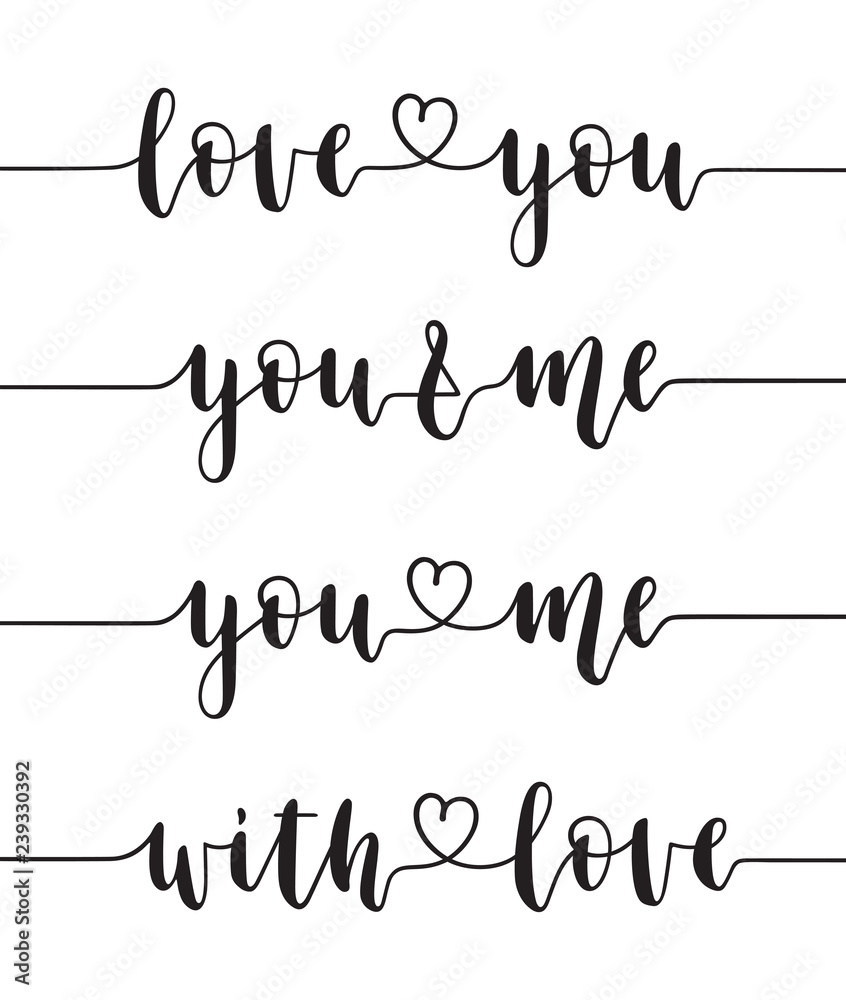 love you
you & me
you me
with love
Adobe Stock | #239330392